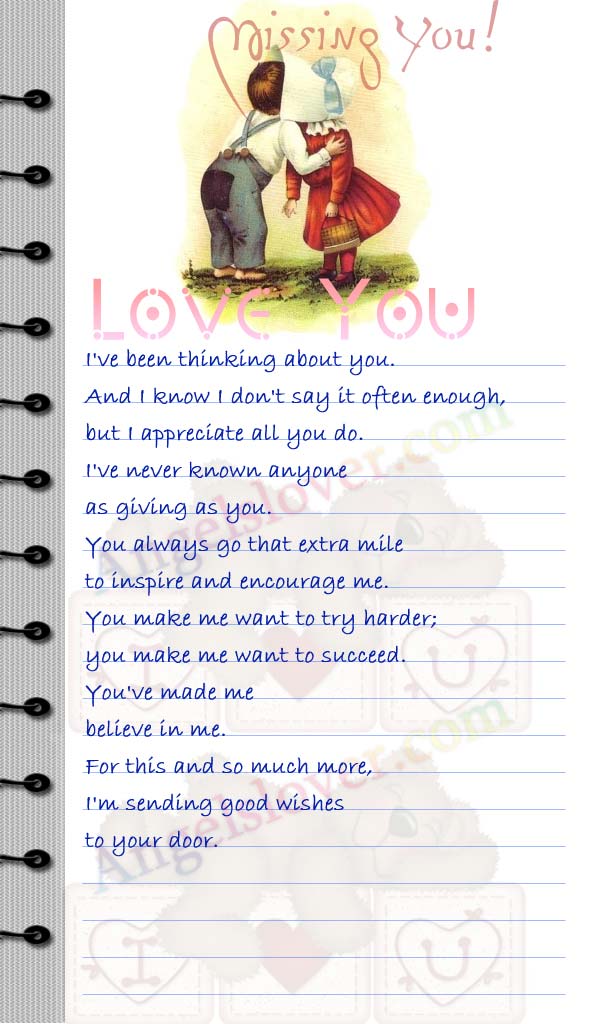 Missing You!
Love You
I've been thinking about you.
And I know I don't say it often enough,
but I appreciate all you do.
I've never known anyone
as giving as you.
You always go that extra mile
to inspire and encourage me.
You make me want to try harder;
you make me want to succeed.
You've made me
believe in me.
For this and so much more,
I'm sending good wishes
to your door.
Angelslover.com
I U
Angelslover.com
I U